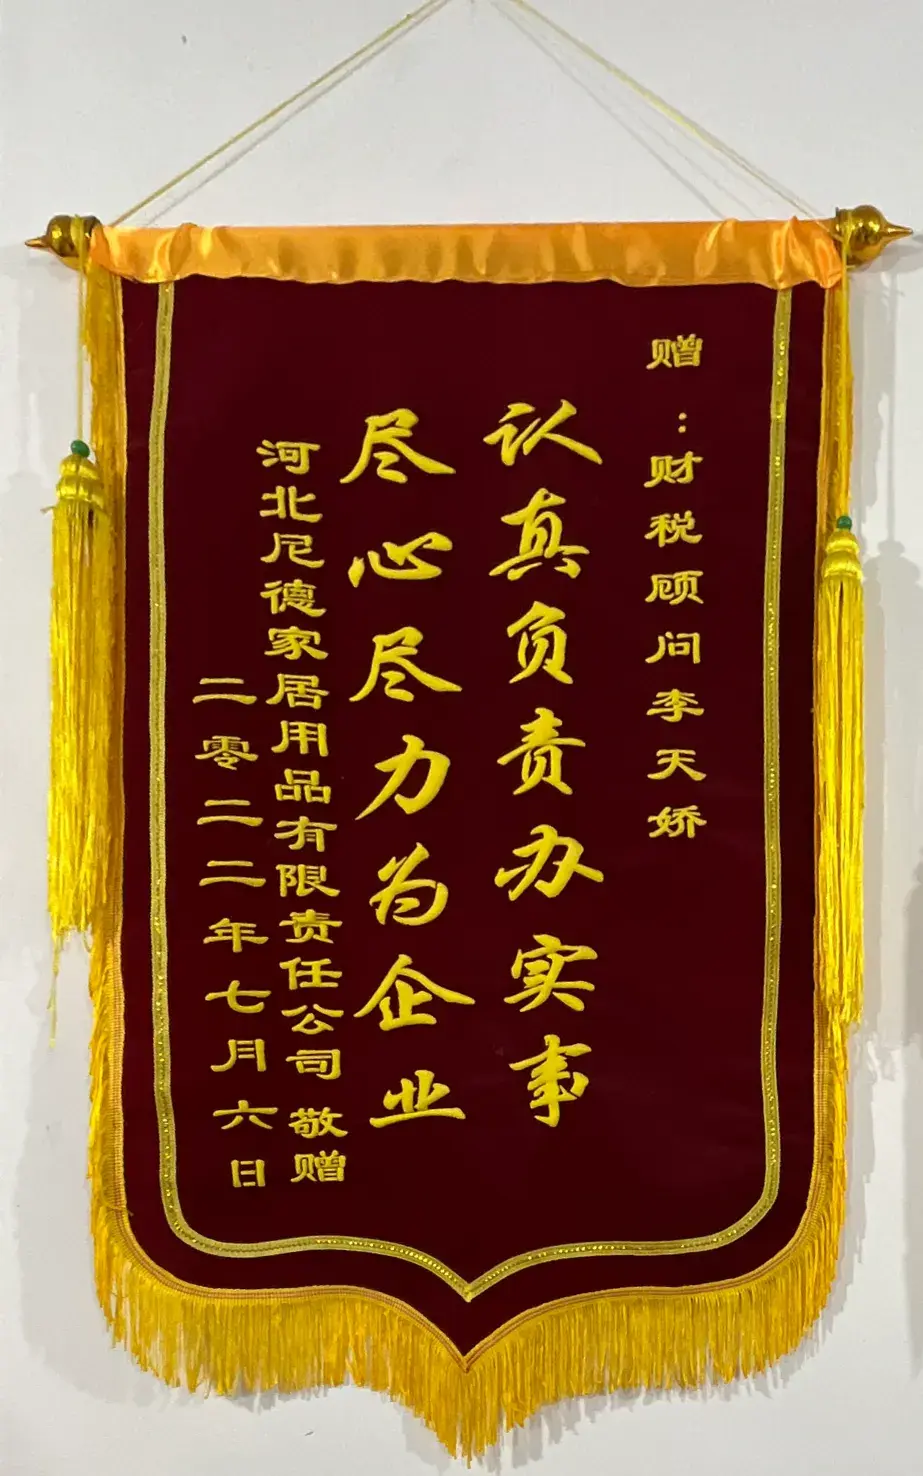 赠：财税顾问李天娇
认真负责办实事
尽心尽力为企业
河北尼德家居用品有限责任公司 敬赠
二零二二年七月六日